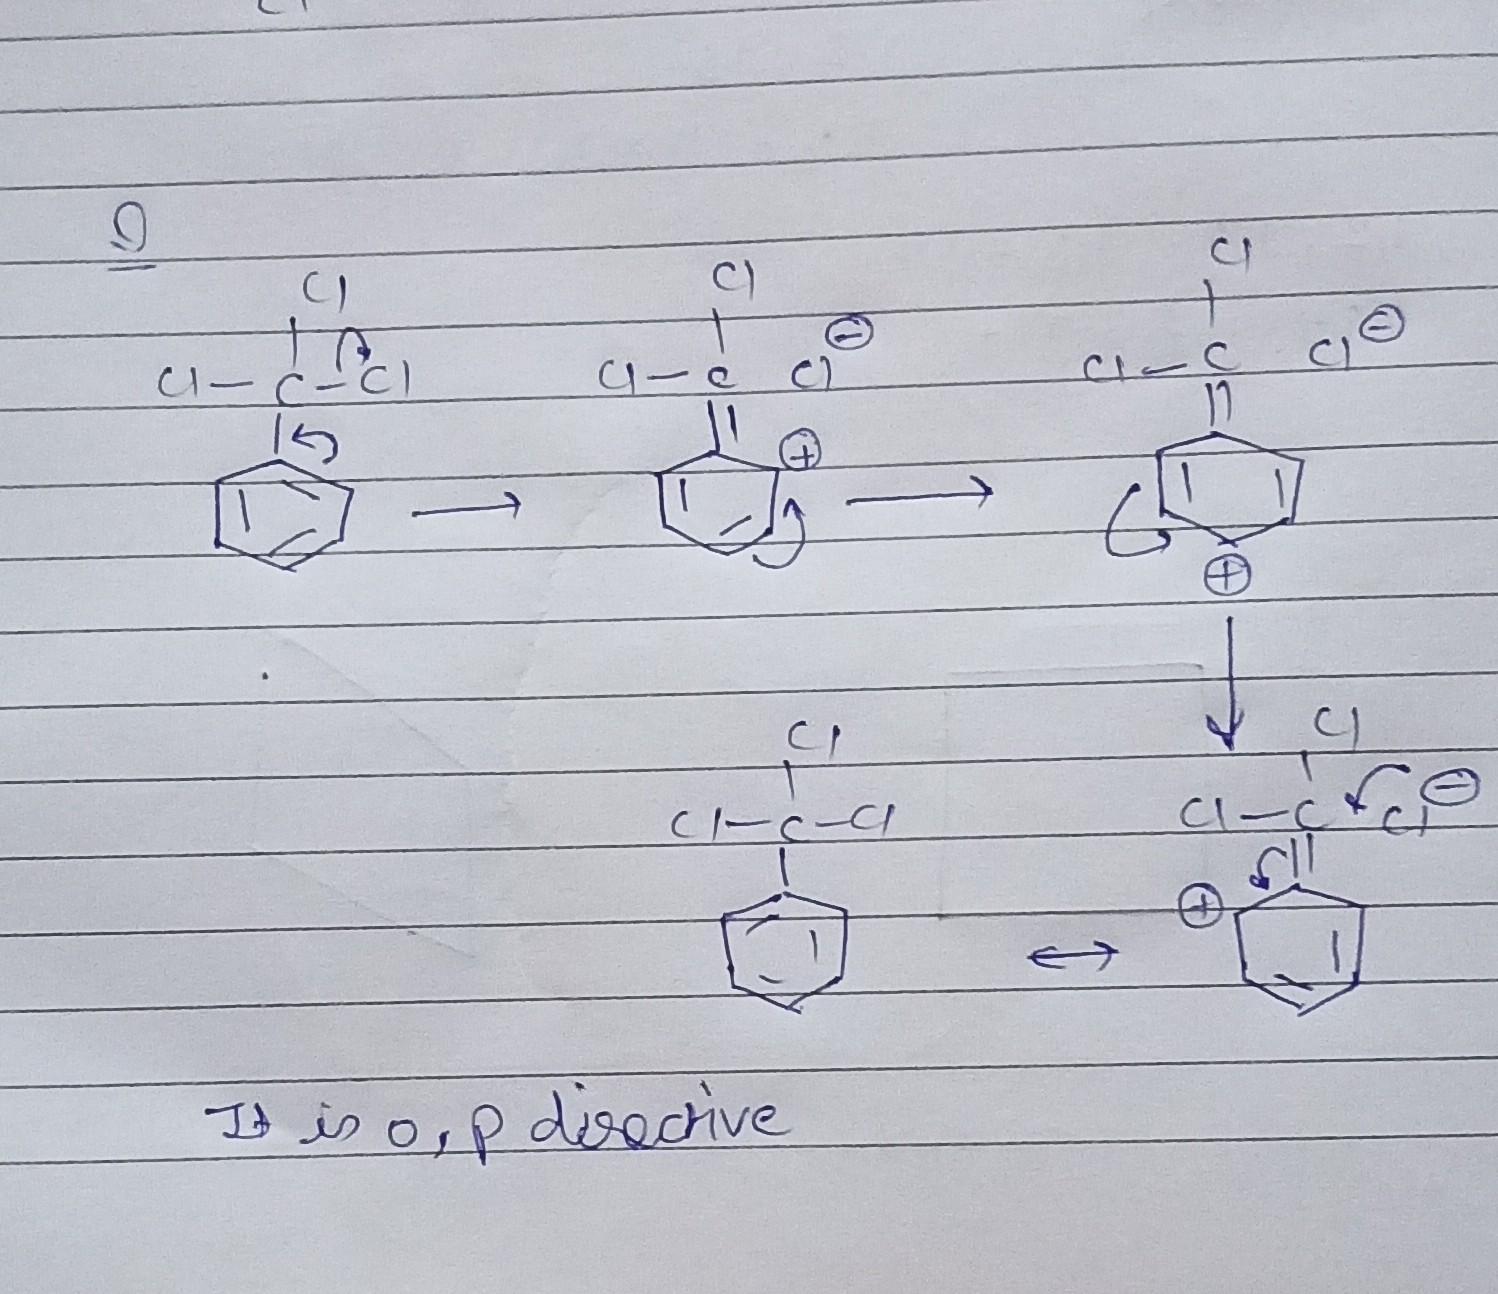 Cl
Cl
Cl
Cl–C–Cl
Cl–C Cl⊖
Cl–C Cl⊖
⊕
⊕
Cl
Cl
Cl–C–Cl
Cl–C Cl⊖
⊕
It is o, p directive